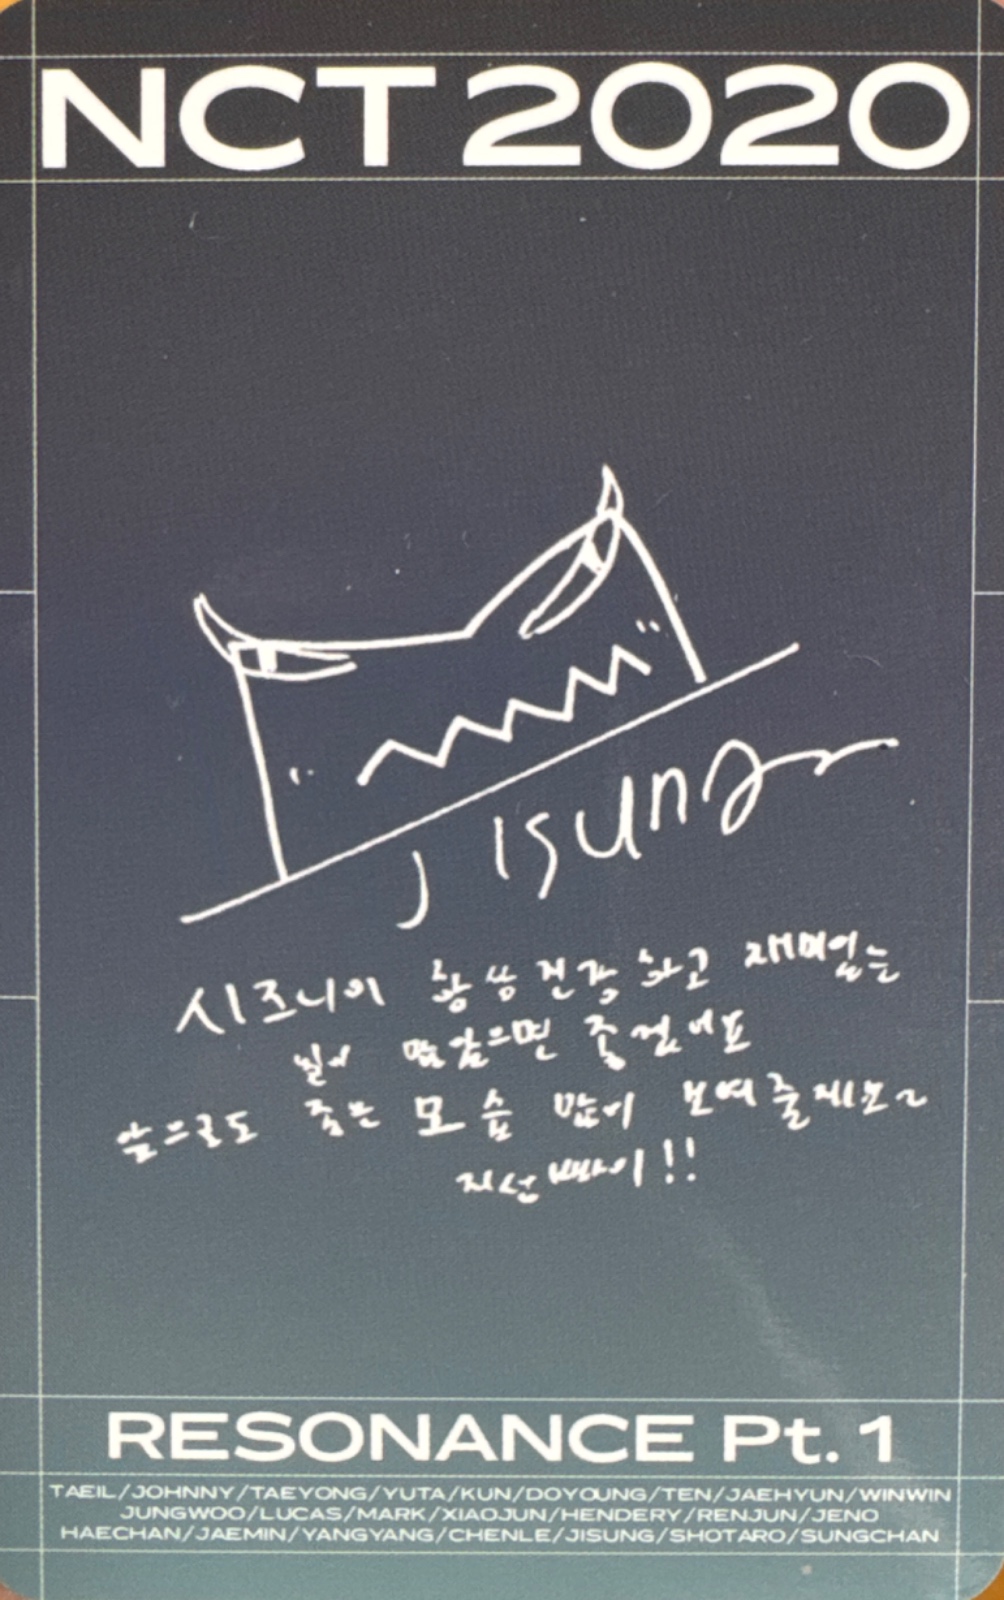 NCT 2020
Jisung
시즈니이 항상 건강하고 재미있는
일이 많았으면 좋겠네요
앞으로도 좋은 모습 많이 보여줄게요~
지성빠이!!
RESONANCE Pt. 1
TAEIL/JOHNNY/TAEYONG/YUTA/KUN/DOYOUNG/TEN/JAEHYUN/WINWIN
JUNGWOO/LUCAS/MARK/XIAOJUN/HENDERY/RENJUN/JENO
HAECHAN/JAEMIN/YANGYANG/CHENLE/JISUNG/SHOTARO/SUNGCHAN